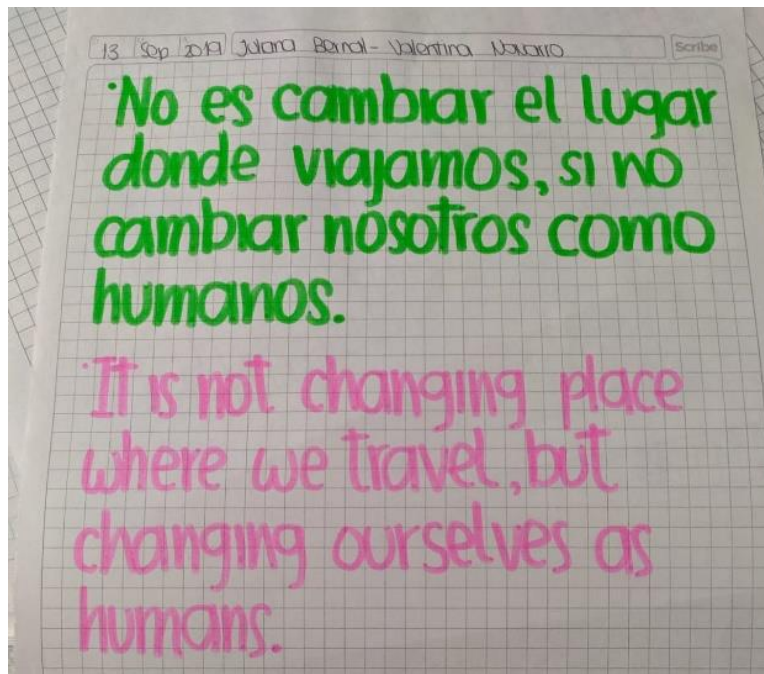 13 Sep 2019 Juliana Bernal - Valentina Navarro Scribe
·No es cambiar el lugar
donde viajamos, si no
cambiar nosotros como
humanos.
·It is not changing place
where we travel, but
changing ourselves as
humans.